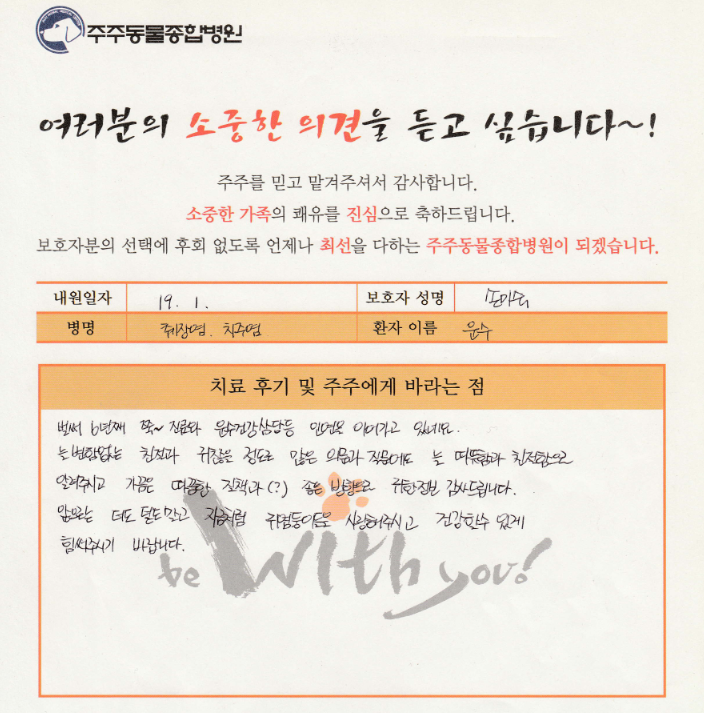 주주동물종합병원
여러분의 소중한 의견을 듣고 싶습니다~!
주주를 믿고 맡겨주셔서 감사합니다.
소중한 가족의 쾌유를 진심으로 축하드립니다.
보호자분의 선택에 후회 없도록 언제나 최선을 다하는 주주동물종합병원이 되겠습니다.
내원일자 19. 1. 보호자 성명
병명 췌장염. 치주염 환자 이름 윤수
치료 후기 및 주주에게 바라는 점
벌써 6년째 쭉~ 진료와 윤수건강상담등 인연을 이어가고 있네요.
늘 변함없는 친절과 귀찮을 정도로 많은 의문과 질문에도 늘 따뜻함과 친절함으로
알려주시고 가끔은 따끔한 질책과(?) 좋은 방향으로 귀한정보 감사드립니다.
앞으로는 더도 덜도말고 지금처럼 귀염둥이들을 사랑해주시고 건강할수 있게
힘써주시기 바랍니다.
be With you!